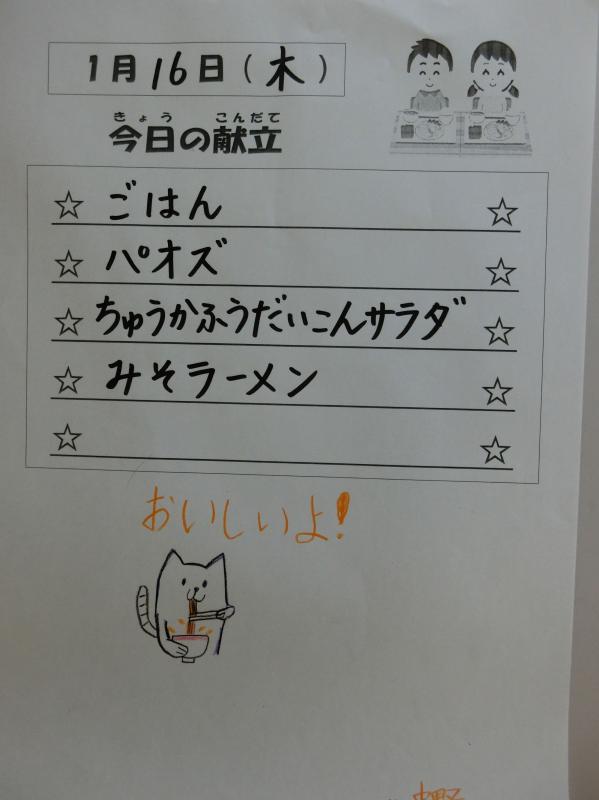 1月16日(木)
きょう こんだて
今日の献立
☆ ごはん ☆
☆ パオズ ☆
☆ ちゅうかふうだいこんサラダ ☆
☆ みそラーメン ☆
☆ ☆
おいしいよ!